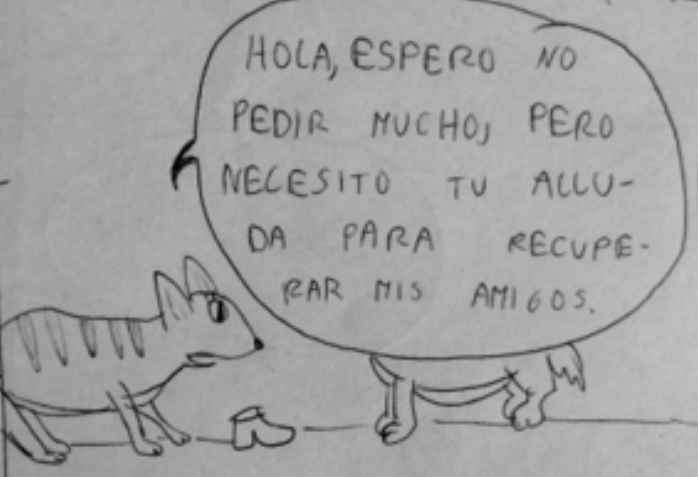 HOLA, ESPERO NO
PEDIR MUCHO, PERO
NECESITO TU ALLU-
DA PARA RECUPE-
RAR MIS AMIGOS.